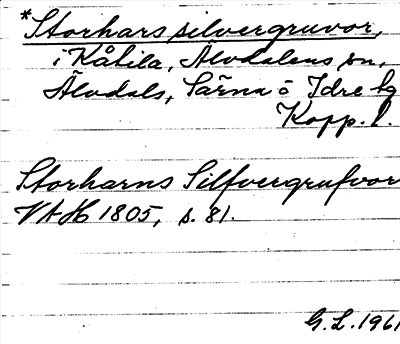 *Storhars silvergruvor,
i Kåtila, Älvdalens sn,
Älvdals, Särna o Idre tg
Kopp. l.
Storharns Silfvergrufvor
VAH 1805, s. 81.
G.L. 1961